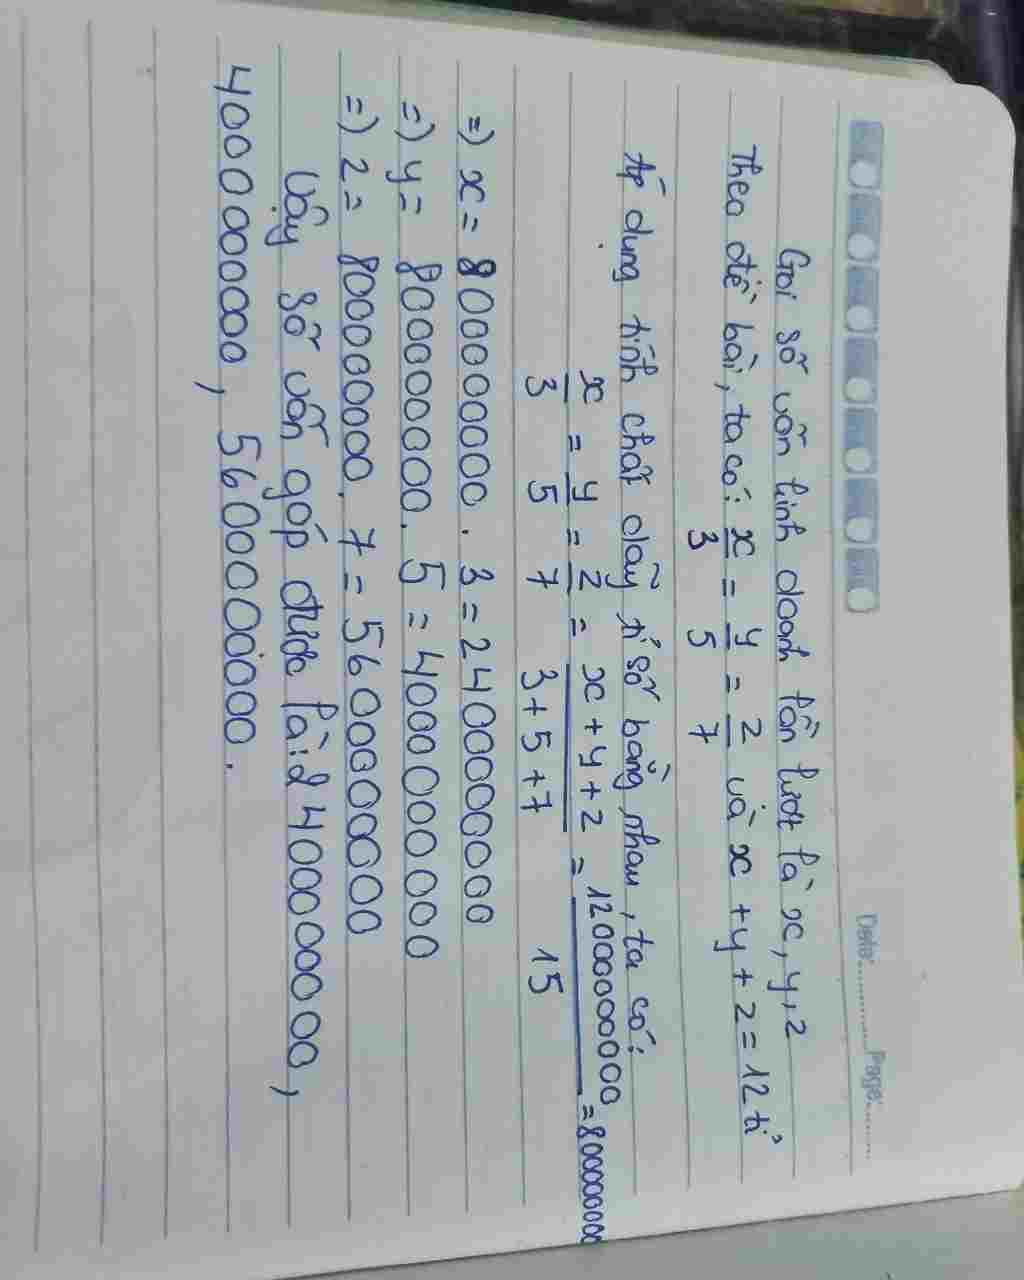 Date:............Page:............
Gọi số vốn kinh doanh lần lượt là x, y, z
Theo đề bài, ta có: x/3 = y/5 = z/7 và x + y + z = 12 tỉ
Áp dụng tính chất dãy tỉ số bằng nhau, ta có:
x/3 = y/5 = z/7 = x + y + z/3 + 5 + 7 = 12000000000/15 = 800000000
=) x = 800000000 . 3 = 2400000000
=) y = 800000000 . 5 = 4000000000
=) z = 800000000 . 7 = 5600000000
Vậy số vốn góp được là: 2400000000,
4000000000, 5600000000.